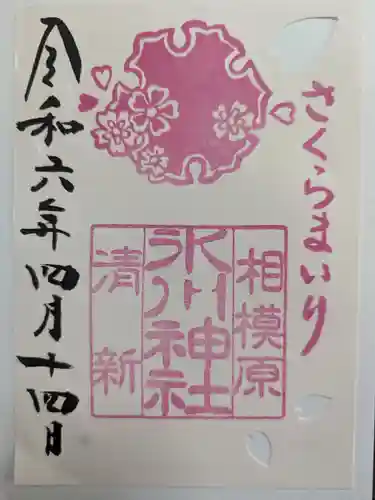 さくらまいり
相模原
氷川神社
清新
令和六年四月十四日